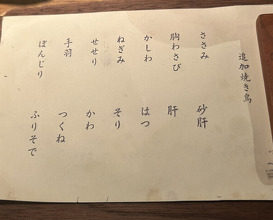 追加焼き鳥
ささみ
砂肝
胸わさび
肝
かしわ
はつ
ねぎみ
そり
せせり
かわ
手羽
つくね
ぼんじり
ふりそで